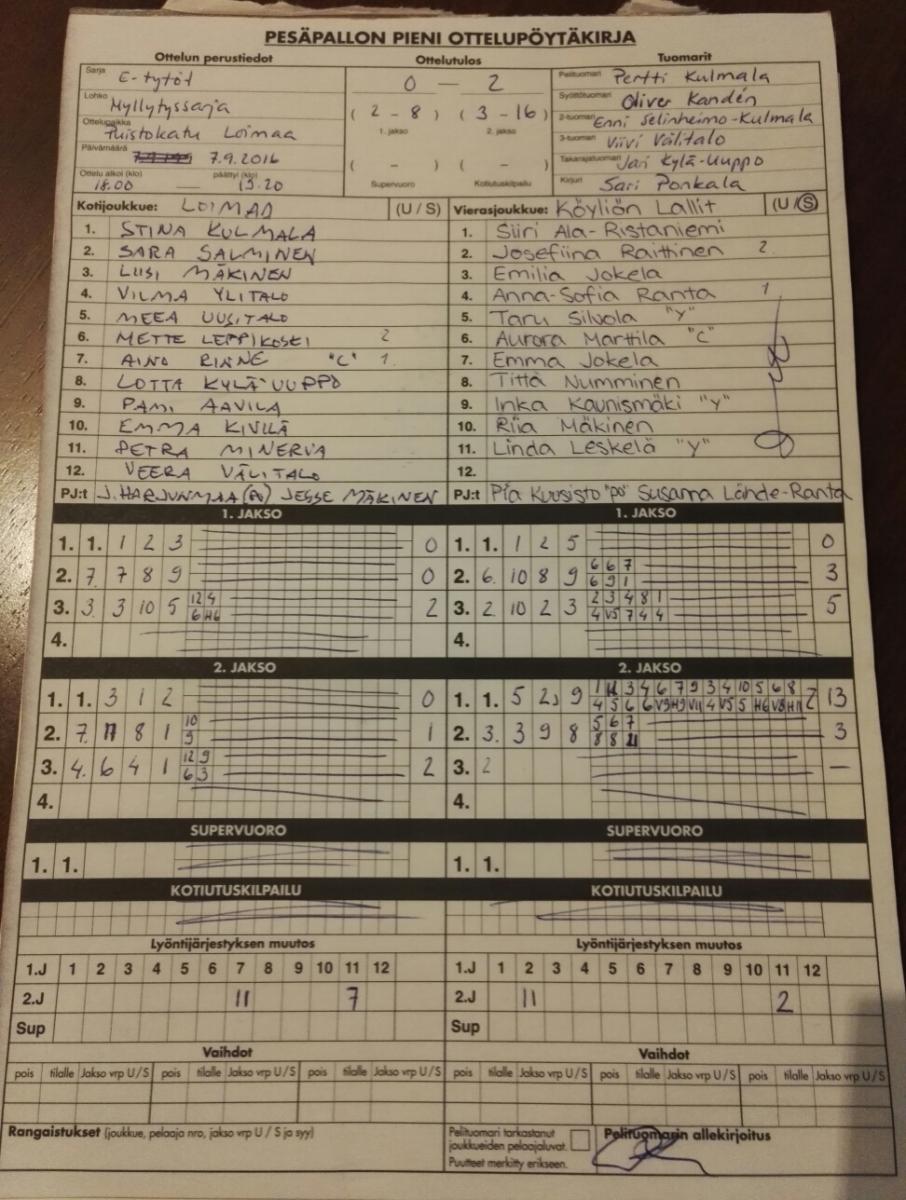 PESÄPALLON PIENI OTTELUPÖYTÄKIRJA
Ottelun perustiedot Ottelutulos Tuomarit
Sarja E-tytöt 0 – 2 Pelituomari Pertti Kulmala
Lohko Hyllytyssarja Syöttötuomari Oliver Kandén
( 2 - 8 ) ( 3 - 16 )
Ottelupaikka Puistokatu Loimaa 1. jakso 2. jakso 2-tuomari Enni Selinheimo-Kulmala
Päivämäärä 7.9.2016 3-tuomari Viivi Välitalo
( - ) ( - ) Takarajatuomari Jari Kylä-Uuppo
Ottelu alkoi (klo) 18.00 — päättyi (klo) 19.20 Supervuoro Kotiutuskilpailu Kirjuri Sari Ponkala
Kotijoukkue: LOIMAA (U / S) Vierasjoukkue: Köyliön Lallit (U / S)
1. STINA KULMALA 1. Siiri Ala-Ristaniemi
2. SARA SALMINEN 2. Josefiina Raittinen 2.
3. LIISI MÄKINEN 3. Emilia Jokela
4. VILMA YLITALO 4. Anna-Sofia Ranta 1
5. MEEA UUSITALO 5. Taru Silvola "y"
6. METTE LEPPIKOSKI 2 6. Aurora Marttila "C"
7. AINO RINNE "C" 1. 7. Emma Jokela
8. LOTTA KYLÄ-UUPPO 8. Titta Numminen
9. PAMI AAVILA 9. Inka Kaunismäki "y"
10. EMMA KIVILÄ 10. Riia Mäkinen
11. PETRA MINERVA 11. Linda Leskelä "y"
12. VEERA VÄLITALO 12.
PJ:t J. HARJUNMAA JESSE MÄKINEN PJ:t Pia Kuusisto "po" Susanna Lähde-Ranta
1. JAKSO 1. JAKSO
1. 1. 1 2 3 0 1. 1. 1 2 5 0
2. 7. 7 8 9 0 2. 6. 10 8 9 6 6 7 3
6 9 1
3. 3. 3 10 5 12 4 2 3. 2. 10 2 3 2 3 4 8 1 5
6 H6 4 V5 7 4 4
4. 4.
2. JAKSO 2. JAKSO
1. 1. 3 1 2 0 1. 1. 5 2 9 1 3 4 6 7 9 3 4 10 5 6 8 13
4 5 6 6 V9 H9 V11 4 V5 5 H6 V8 H11
2. 7. 11 8 1 10 1 2. 3. 3 9 8 5 6 7 3
9 8 8
3. 4. 6 4 1 12 9 2 3. 2 –
6 3
4. 4.
SUPERVUORO SUPERVUORO
1. 1. 1. 1.
KOTIUTUSKILPAILU KOTIUTUSKILPAILU
Lyöntijärjestyksen muutos Lyöntijärjestyksen muutos
1.J 1 2 3 4 5 6 7 8 9 10 11 12 1.J 1 2 3 4 5 6 7 8 9 10 11 12
2.J 11 7 2.J 11 2
Sup Sup
Vaihdot Vaihdot
pois tilalle Jakso vrp U / S pois tilalle Jakso vrp U / S pois tilalle Jakso vrp U / S pois tilalle Jakso vrp U / S pois tilalle Jakso vrp U / S pois tilalle Jakso vrp U / S
Rangaistukset (joukkue, pelaaja nro, jakso vrp U / S ja syy) Pelituomari tarkastanut Pelituomarin allekirjoitus
joukkueiden pelaajaluvat.
Puutteet merkitty erikseen.